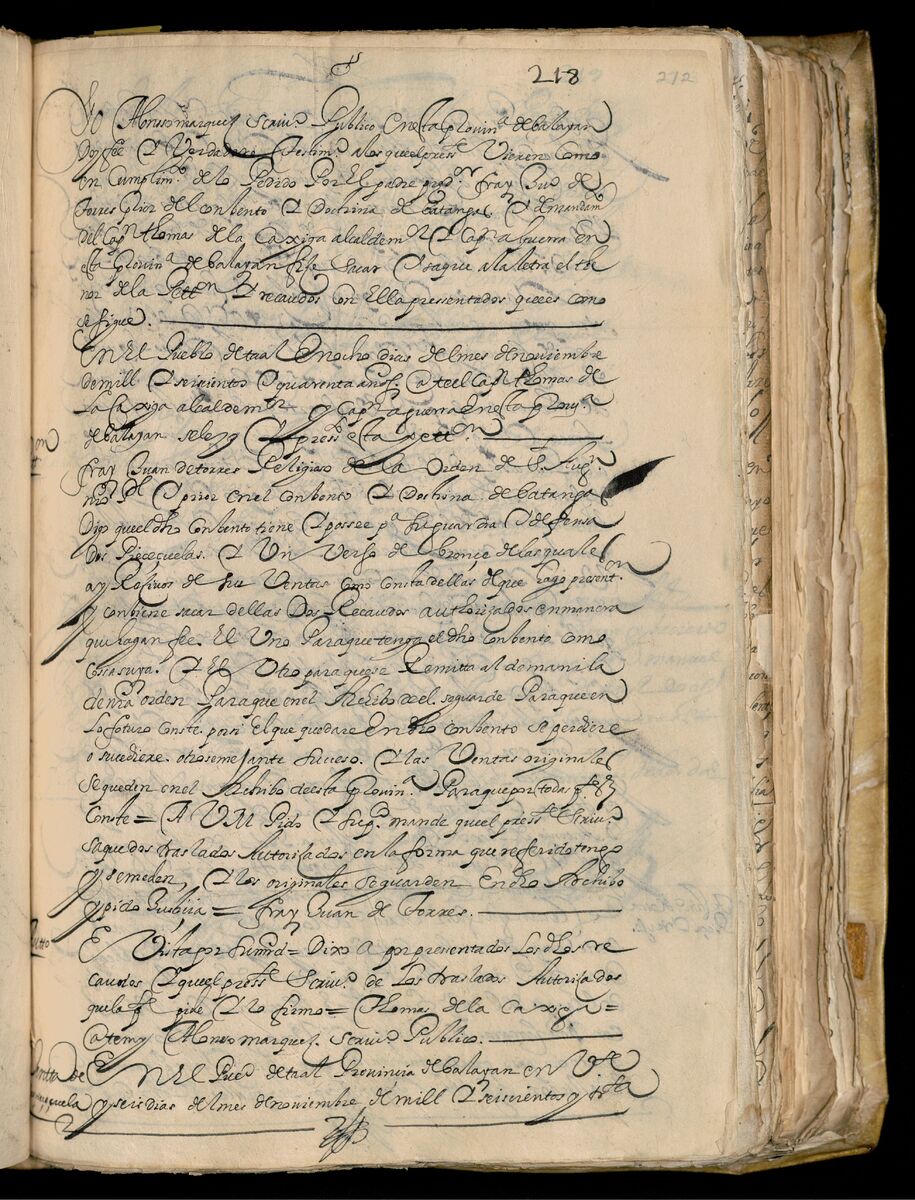 218
212
Yo Alonsso marquez Scriuº Publico enesta Prouinª de balayan
Doy fee Y Verdadero testimº alos que el presste Vieren Como
en Cumplimtº de lo Pedido Por El padre pryor fray Juº de
Torres Prior del conbento Y Doctrina de batangas Y de mandamtº
Del Capn thomas de la Caxiga alcalde mor Y Capn a Guerra en
esta Prouinª de balayan fise sacar Y saque ala letra el the
nor de la Pettn Y recaudos con Ella presentados que es como
se sigue.
En El Pueblo de taal En ocho dias del mes de nouiembre
de mill Y seiscientos Y quarenta años. ante el Capn thomas de
La Caxiga alcalde mor y Capn a guerra En esta Prouª
de balayan se leyo Y pressto esta pettn
fray Juan de torres Religioso de La Orden de S. Augn
nro Pe Y prior en el Conbento Y Doctrina de batangas
Digo que el dho Conbento tiene Y possee pª su guardia Y defensa
Dos Piececuelas. Y Un Verso de bronçe de las quales
ay Resiuos de sus Ventas como consta dellas de que hago presentn
y conbiene sacar dellas Dos Recaudos authorizados en manera
que hagan fee. El Uno Para que tenga el dho Conbento como
Cosa suya. Y El Otro para que se Remitta al de manila
de nra orden Para que en el Archibo del se guarde Para que en
Lo foturo Conste. por si El que quedare En dho conbento se perdiere
o sucediere otro semejante suceso. Y las Ventas originales
se queden en el Archibo de esta Prouinª Para que por todas
Conste = A V M Pido Y supco mande que el presste Scriuº
saque dos traslados Autorisados en la forma que referido tengo
y se me den, Y los originales se guarden En dho Archibo
y pido Justiçia = fray Juan de Torres.
E Vista por su md = Dixo a por presentados Los dhos re
caudos Y que el presste Scriuº de Los traslados Autorisados
que la pte pide Y lo firmo = Thomas de la Caxiga =
ante my Alonso marquez Scriuº Publico.
Auto
En El Pueº de taal Prouincia de balayan en Vte
y seis dias del mes de nouiembre de mill Y seiscientos y trta
Ventta de